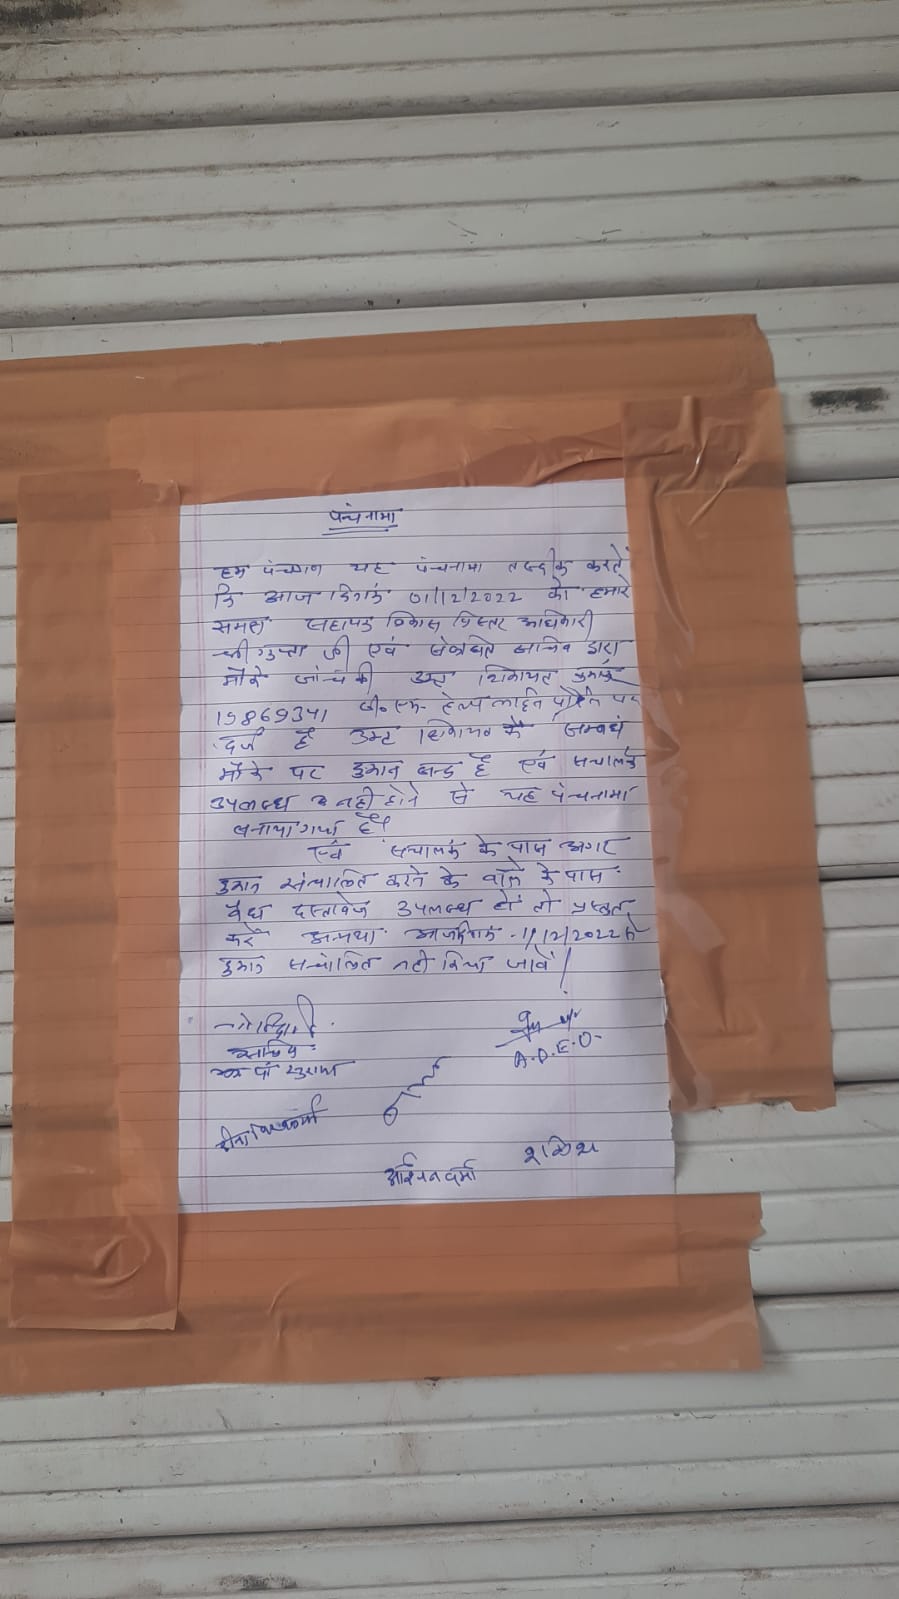 पन्चनामा
हम पंचगण यह पंचनामा तस्दीक करते
कि आज दिनांक 01/12/2022 को हमारे
समक्ष सहायक विकास विस्तार अधिकारी
श्री गुप्ता जी एवं संबंधित सचिव द्वारा
मौके जांच की उक्त शिकायत क्रमांक
19869341 सी॰एम॰ हेल्प लाईन पोर्टल पर
दर्ज है उक्त शिकायत के सम्बधं
मौके पर दुकान बन्द है एवं संचालक
उपलब्ध नही होने से यह पंचनामा
बनाया गया है।
एवं संचालक के पास अगर
दुकान संचालित करने के वाले के पास
वैध दस्तावेज उपलब्ध हों तो प्रस्तुत
करें अन्यथा आज दिनांक 1/12/2022 से
दुकान संचालित नही किया जावें।
सचिव
ग्रा पं
A.D.E.O.
रीना विश्वकर्मा
अश्विन वर्मा